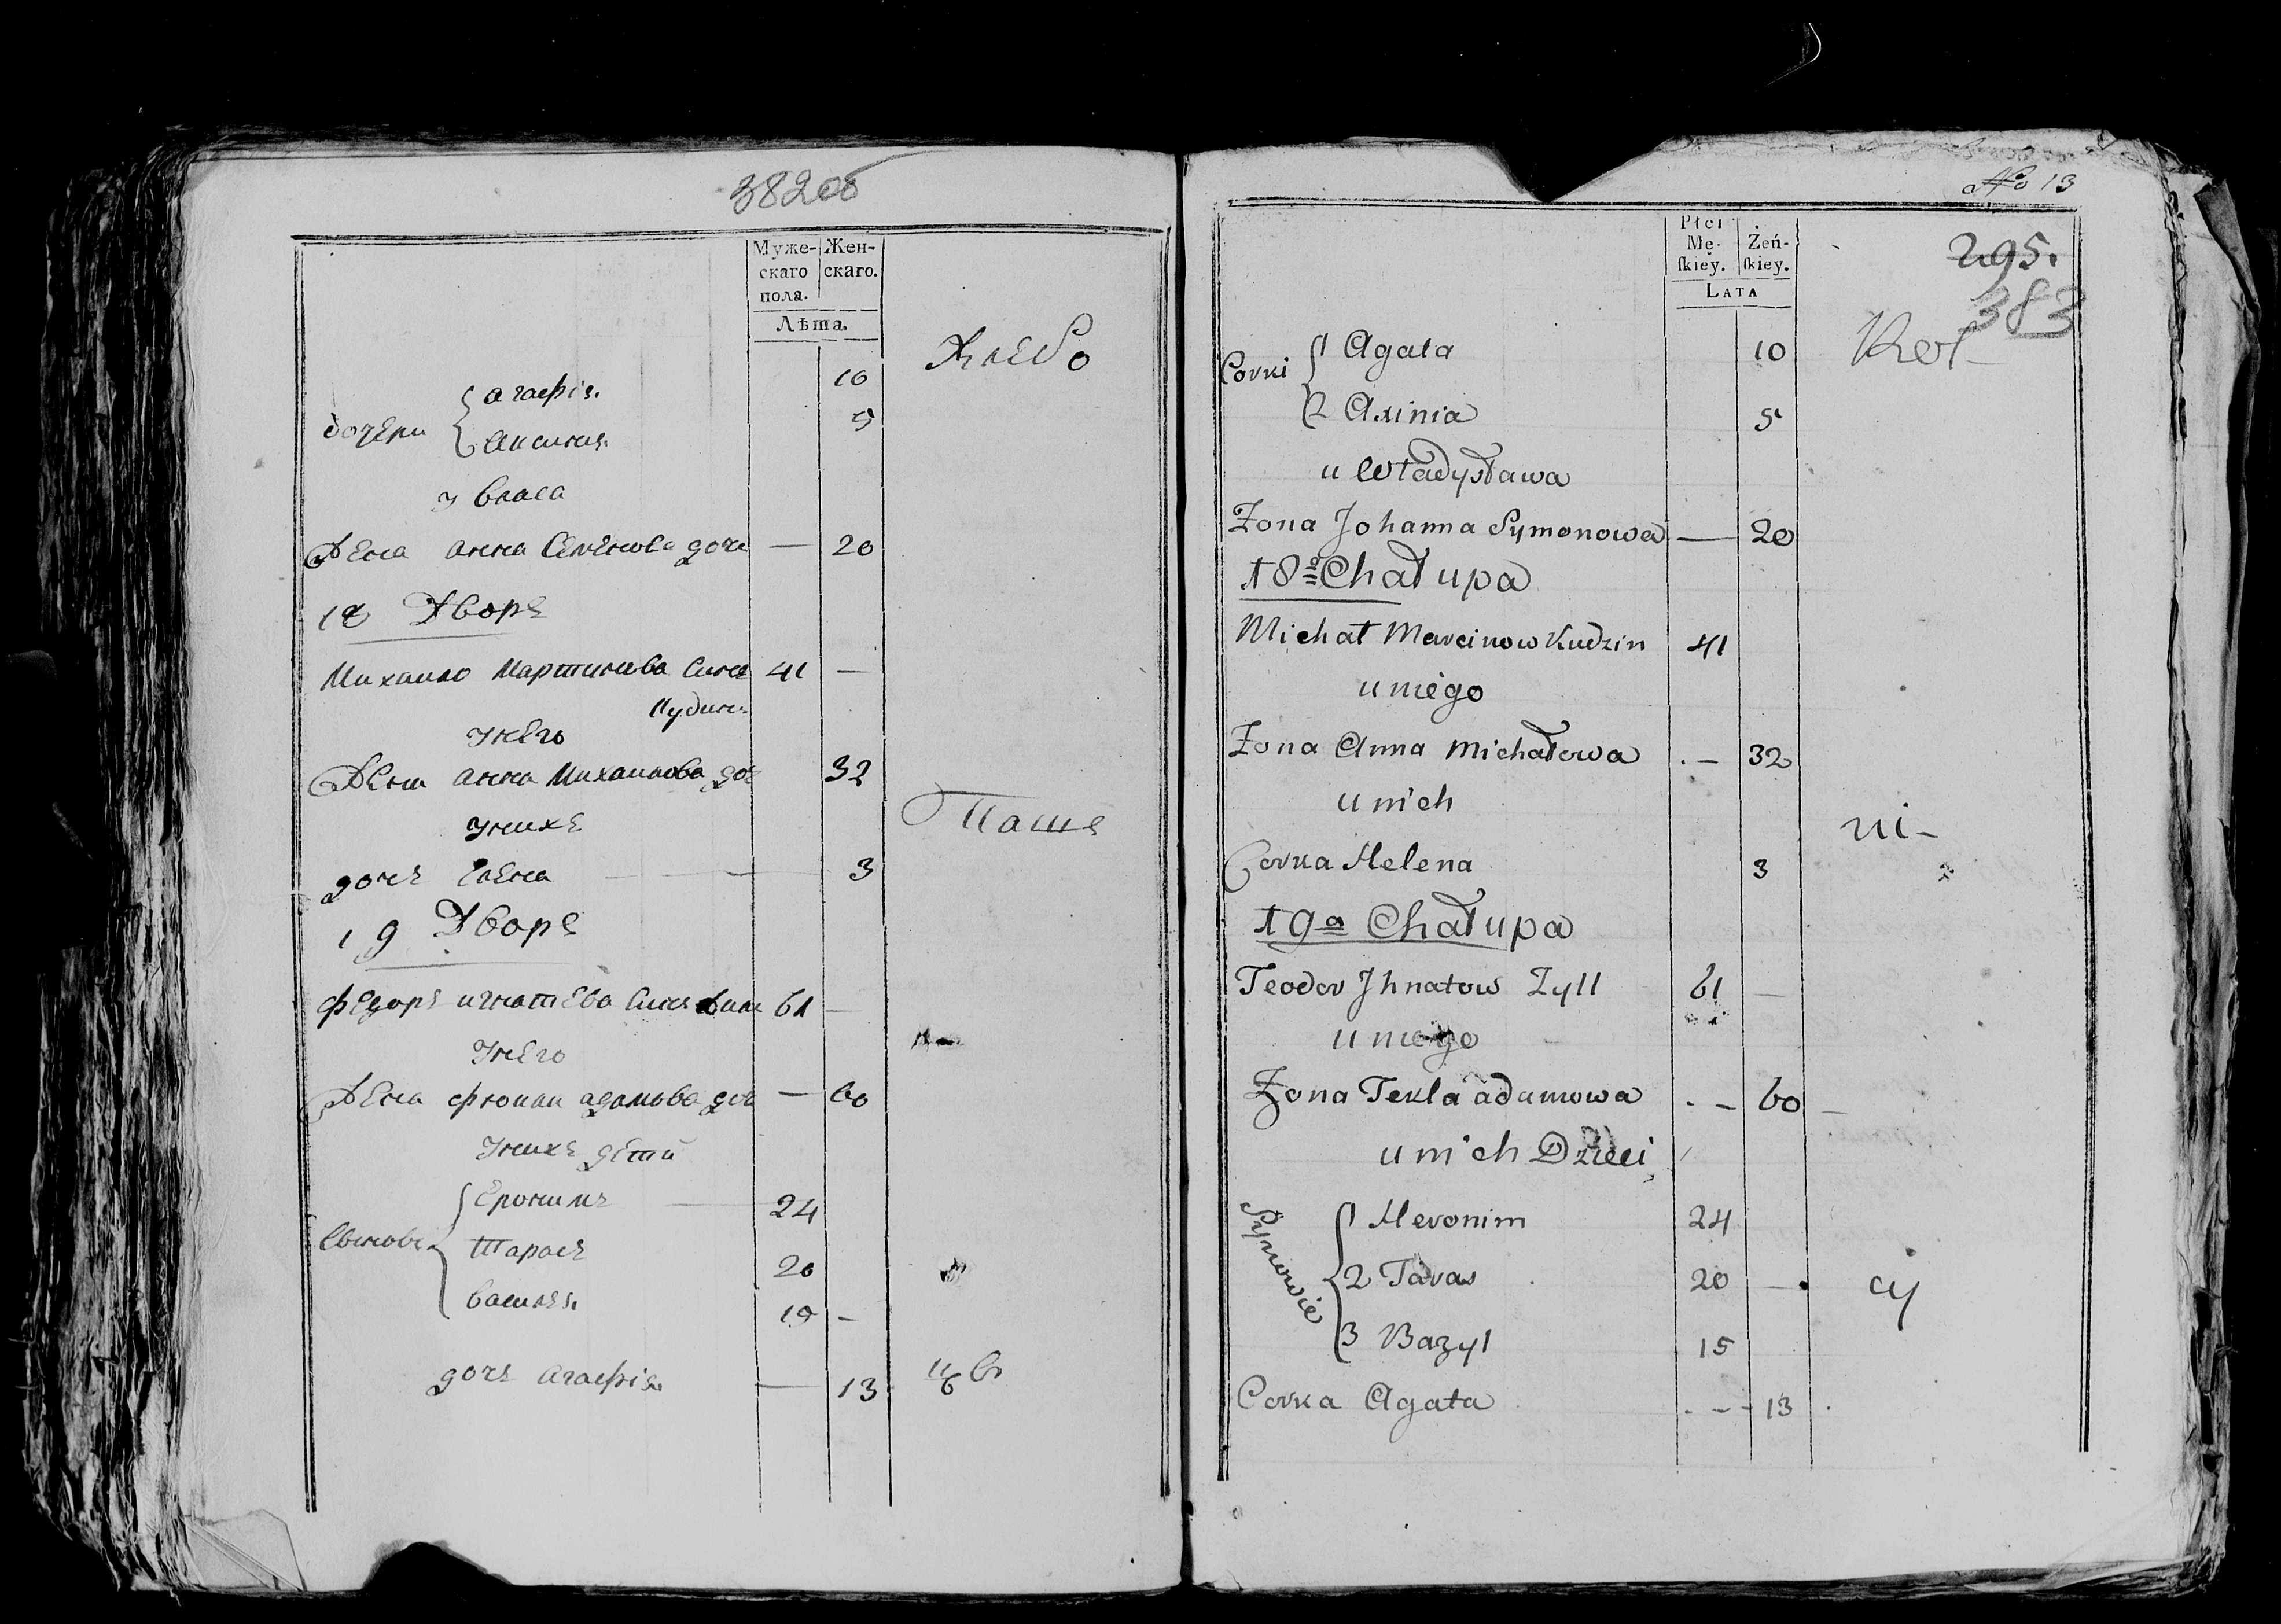 382об
Муже- Жен-
скаго скаго.
пола.
Лѣта.
Хлебо
дочери
Агафiя 10
Аксиния 5
у Власа
Жена Анна Семенова дочь — 20
18 Дворъ
Михаило Мартинова Синъ 41 —
Кудинъ
У него
Жена Анна Михаилова доч 32
У нихъ
Пашъ
дочъ Елена — 3
19 Дворъ
Федоръ игнатЕва Синъ 61 —
У него
Жена адамова доч — 60
У нихъ дети
Сыновъ
Еронимъ — 24
Тарасъ 20
Василъ —
дочъ Агафiя — 13
цъ
No 13
Płci
Mę- Żeń-
skiey. skiey.
Lata
295.
383
Kol-
Corki
1 Agata 10
2 Axinia 5
u Władysława
Żona Johanna Symonowa — 20
18a Chałupa
Michał Marcinow Kudzin 41
u niego
Żona Anna Michałowa . — 32
u nich
ni-
Corka Helena 3
19a Chałupa
Teodor Jhnatow Zyll 61 —
u niego
Żona Tekla adamowa . — 60
u nich Dzieci
Synowie
1 Heronim 24
2 Taras 20 —
cy
3 Bazyl 15
Corka Agata . — - 13